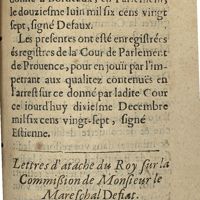 donné à Bordeaux, en Parlement,
le douziesme Iuin mil six cens vingt
sept, signé Defaux.
Les presentes ont esté enregistrées
és registres de la Cour de Parlement
de Prouence, pour en joüir par l'im-
petrant aux qualitez contenuës en
l'arrest sur ce donné par ladite Cour
ce iourd'huy diviesme Decembre
mil six cens vingt-sept, signé
Estienne.
Lettres d'atache du Roy sur la
Commißion de Monsieur le
Mareschal Defiat.